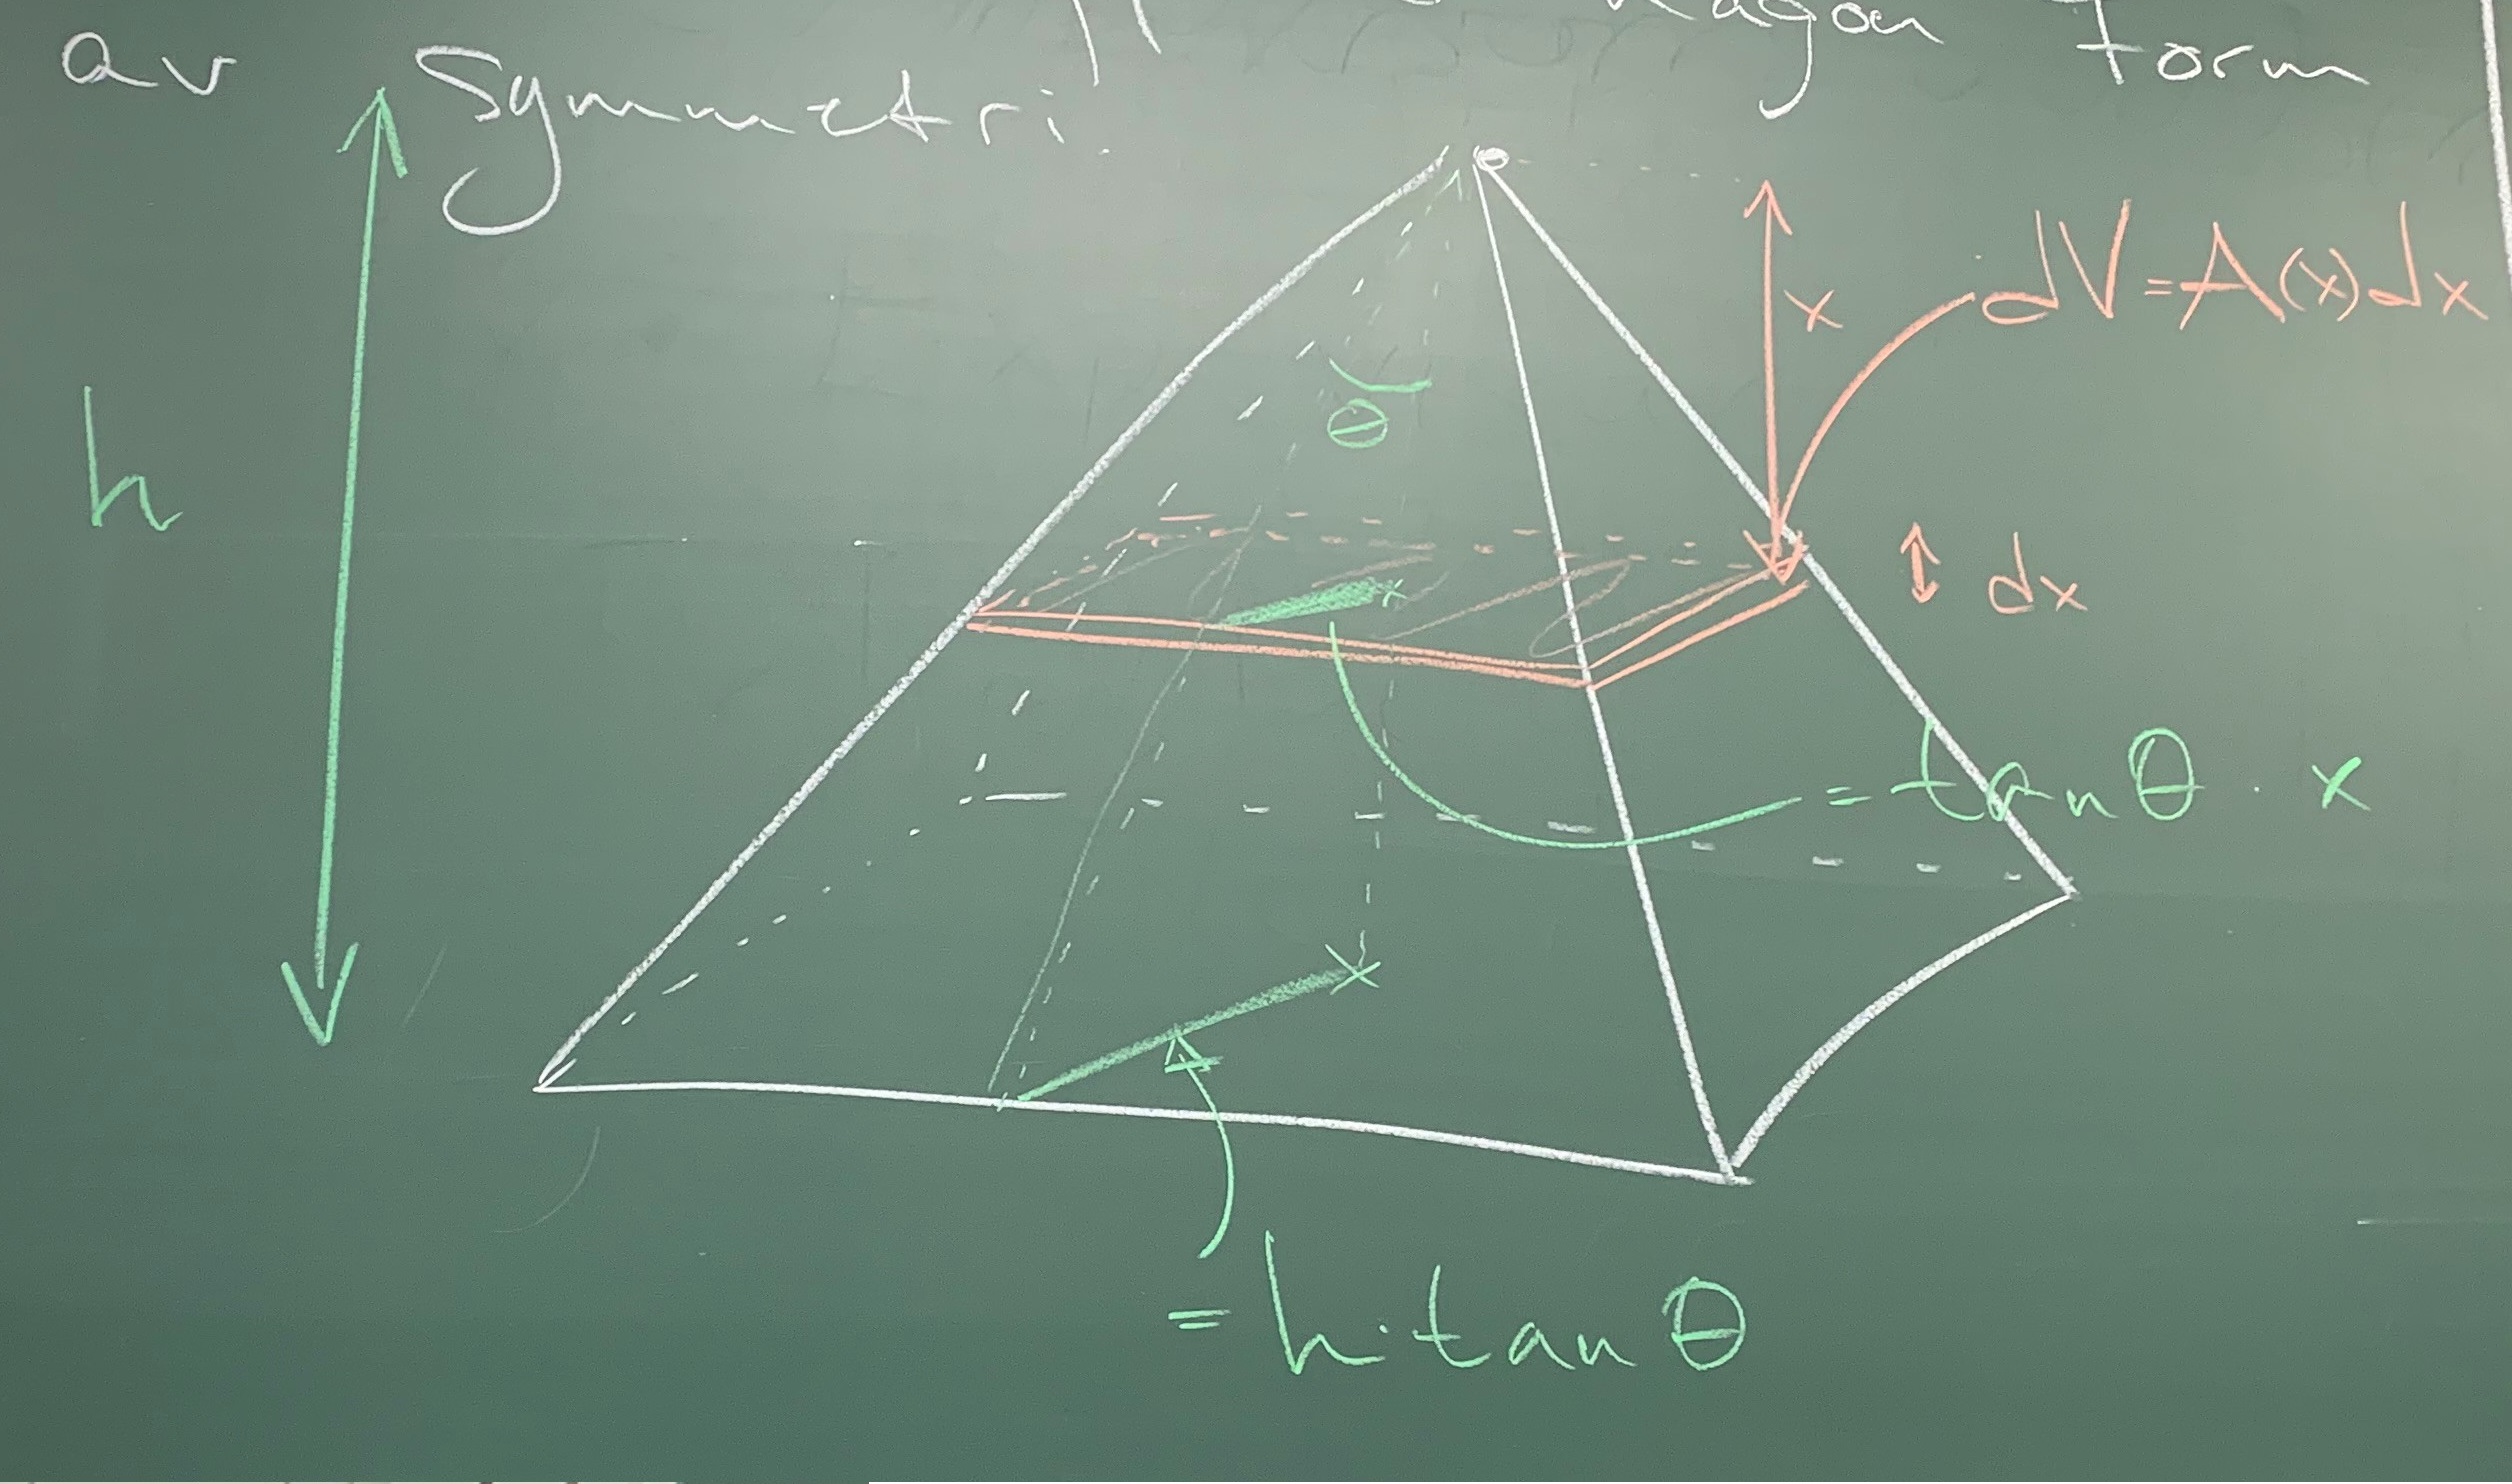 någon form
av symmetri.
h
θ
x
dV=A(x)dx
dx
= tanθ · x
= h·tanθ